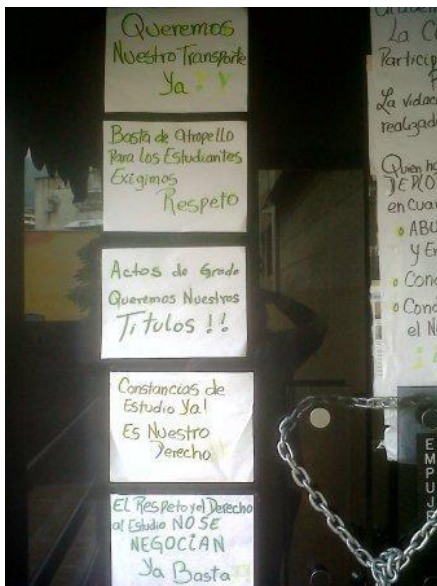 Queremos
Nuestro Transporte
Ya !!
Basta de Atropello
Para los Estudiantes
Exigimos
Respeto
Actos de Grado
Queremos Nuestros
Títulos !!
Constancias de
Estudio Ya!
Es Nuestro
Derecho
El Respeto y el Derecho
al Estudio NO SE
NEGOCIAN
Ya Basta
La
realizad
Quien
en
y
el
EMPUJE